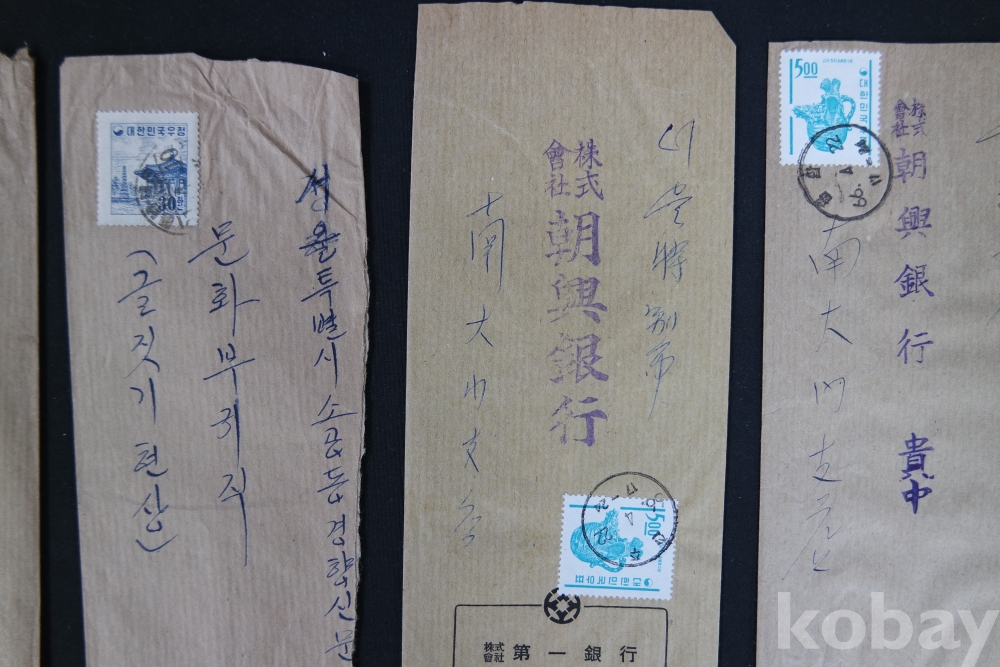 대한민국우정
30
환
서울특별시 소공동 경향신문
문화부 귀직
(글짓기 현상)
株式會社 朝興銀行
南大门支店
5.00
대한민국우표
株式會社 第一銀行
5.00
대한민국우표
株式會社 朝興銀行 貴中
南大门支店
kobay